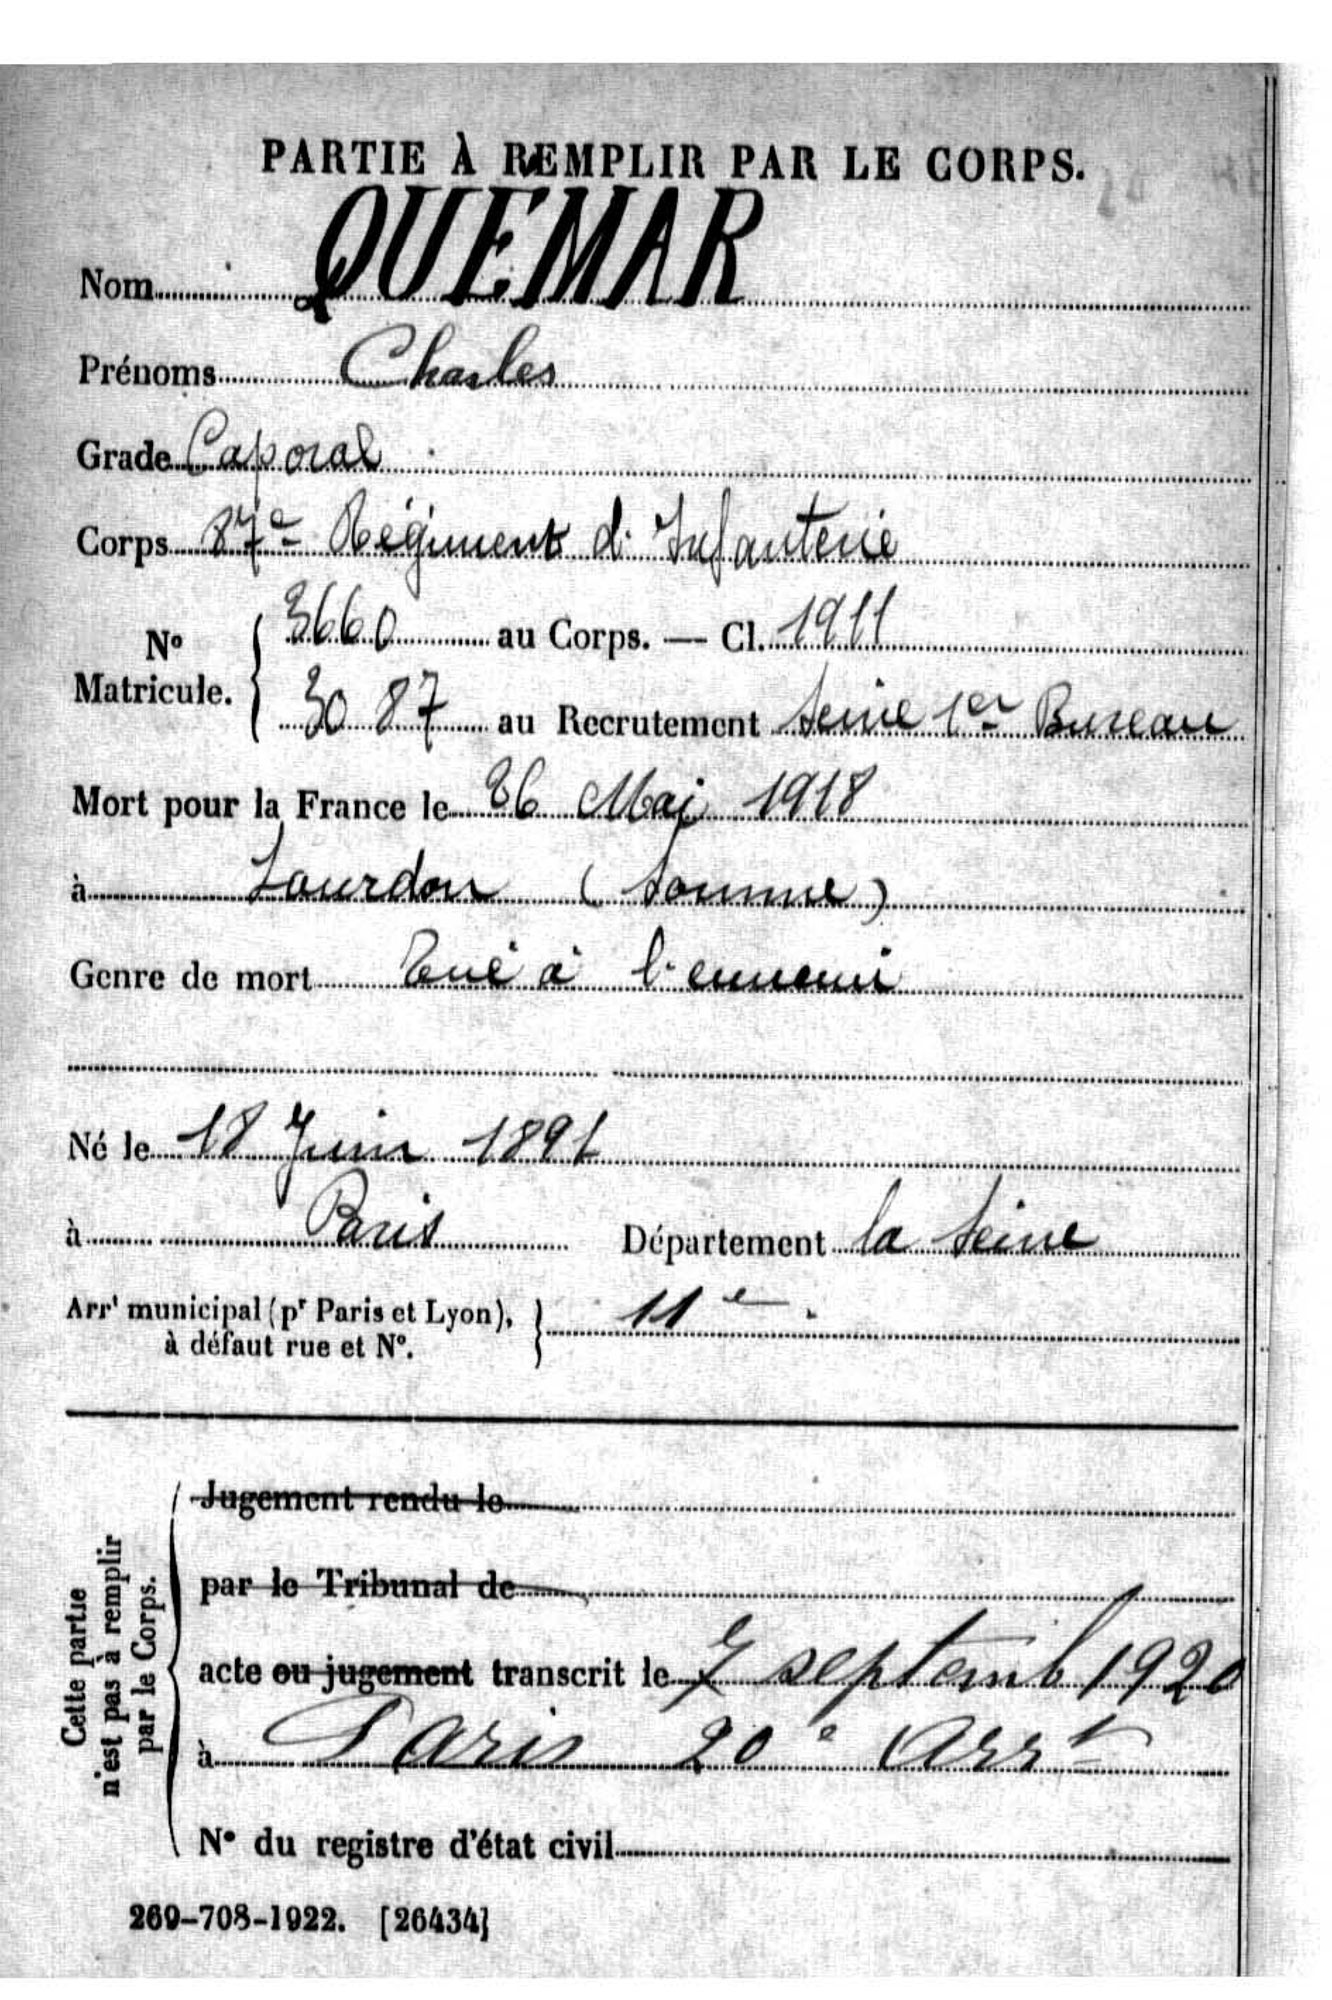 PARTIE À REMPLIR PAR LE CORPS.
Nom QUEMAR
Prénoms Charles
Grade Caporal
Corps 87e Régiment d'Infanterie
No Matricule. { 3660 au Corps. — Cl. 1911
3087 au Recrutement Seine 1er Bureau
Mort pour la France le 26 Mai 1918
à Lourdon (Somme)
Genre de mort Tué à l'ennemi
Né le 18 Juin 1891
à Paris Département la Seine
Arrt municipal (pr Paris et Lyon), à défaut rue et No. } 11e
Cette partie n'est pas à remplir par le Corps.
Jugement rendu le
par le Tribunal de
acte ou jugement transcrit le 7 septemb 1920
à Paris 20e Arrt
No du registre d'état civil
269-708-1922. [26434]